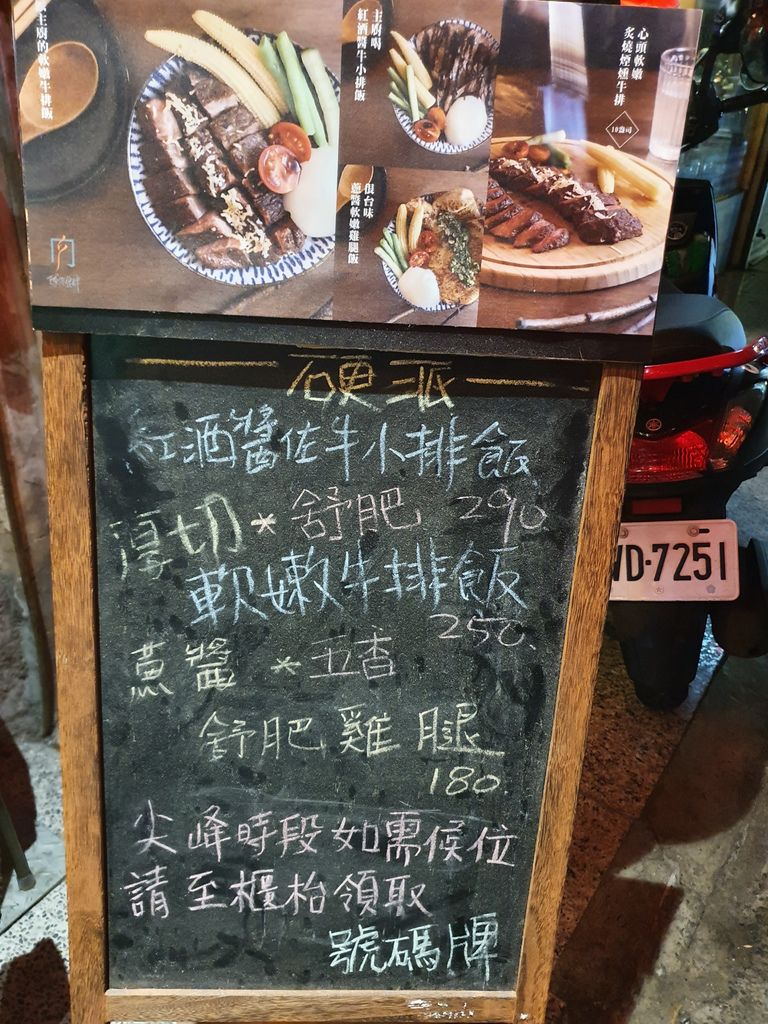 主廚的軟嫩牛排飯
主廚喝
紅酒醬牛小排飯
很台味
蔥醬軟嫩雞腿飯
心頭軟嫩
炙燒煙燻牛排
18盎司
硬派
紅酒醬佐牛小排飯
厚切*舒肥 290
軟嫩牛排飯
250.
蔥醬*五香
舒肥雞腿
180.
尖峰時段如需候位
請至櫃枱領取
號碼牌
VD-7251